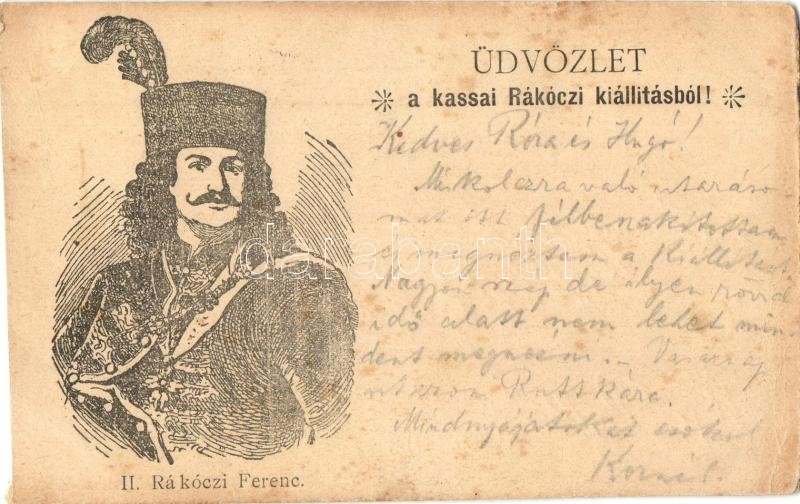 ÜDVÖZLET
a kassai Rákóczi kiállitásból!
Kedves Róza és Hugó!
Miskolczra való utazáso
mat itt félbenakítottam
és megnéztem a Kiállítást.
Nagyon szép de ilyen rövid
idő alatt nem lehet min
dent megnézni. – Vasárnap
utazom Ruttkára.
Mindnyájatokat csókol
Kornél.
II. Rákóczi Ferenc.
darabanth